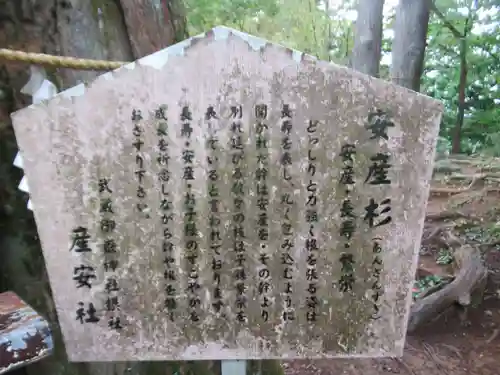 安産杉(あんざんすぎ)
安産・長寿・繁栄
どっしりと力強く根を張る姿は
長寿を表し、丸く包み込むように
開かれた幹は安産を・その幹より
別れ延びる数多の枝は子孫繁栄を
表していると言われております。
長寿・安産・お子様のすこやかな
成長を祈念しながら幹や根を優しく
おさすり下さい。
武蔵御嶽神社摂社
産安社